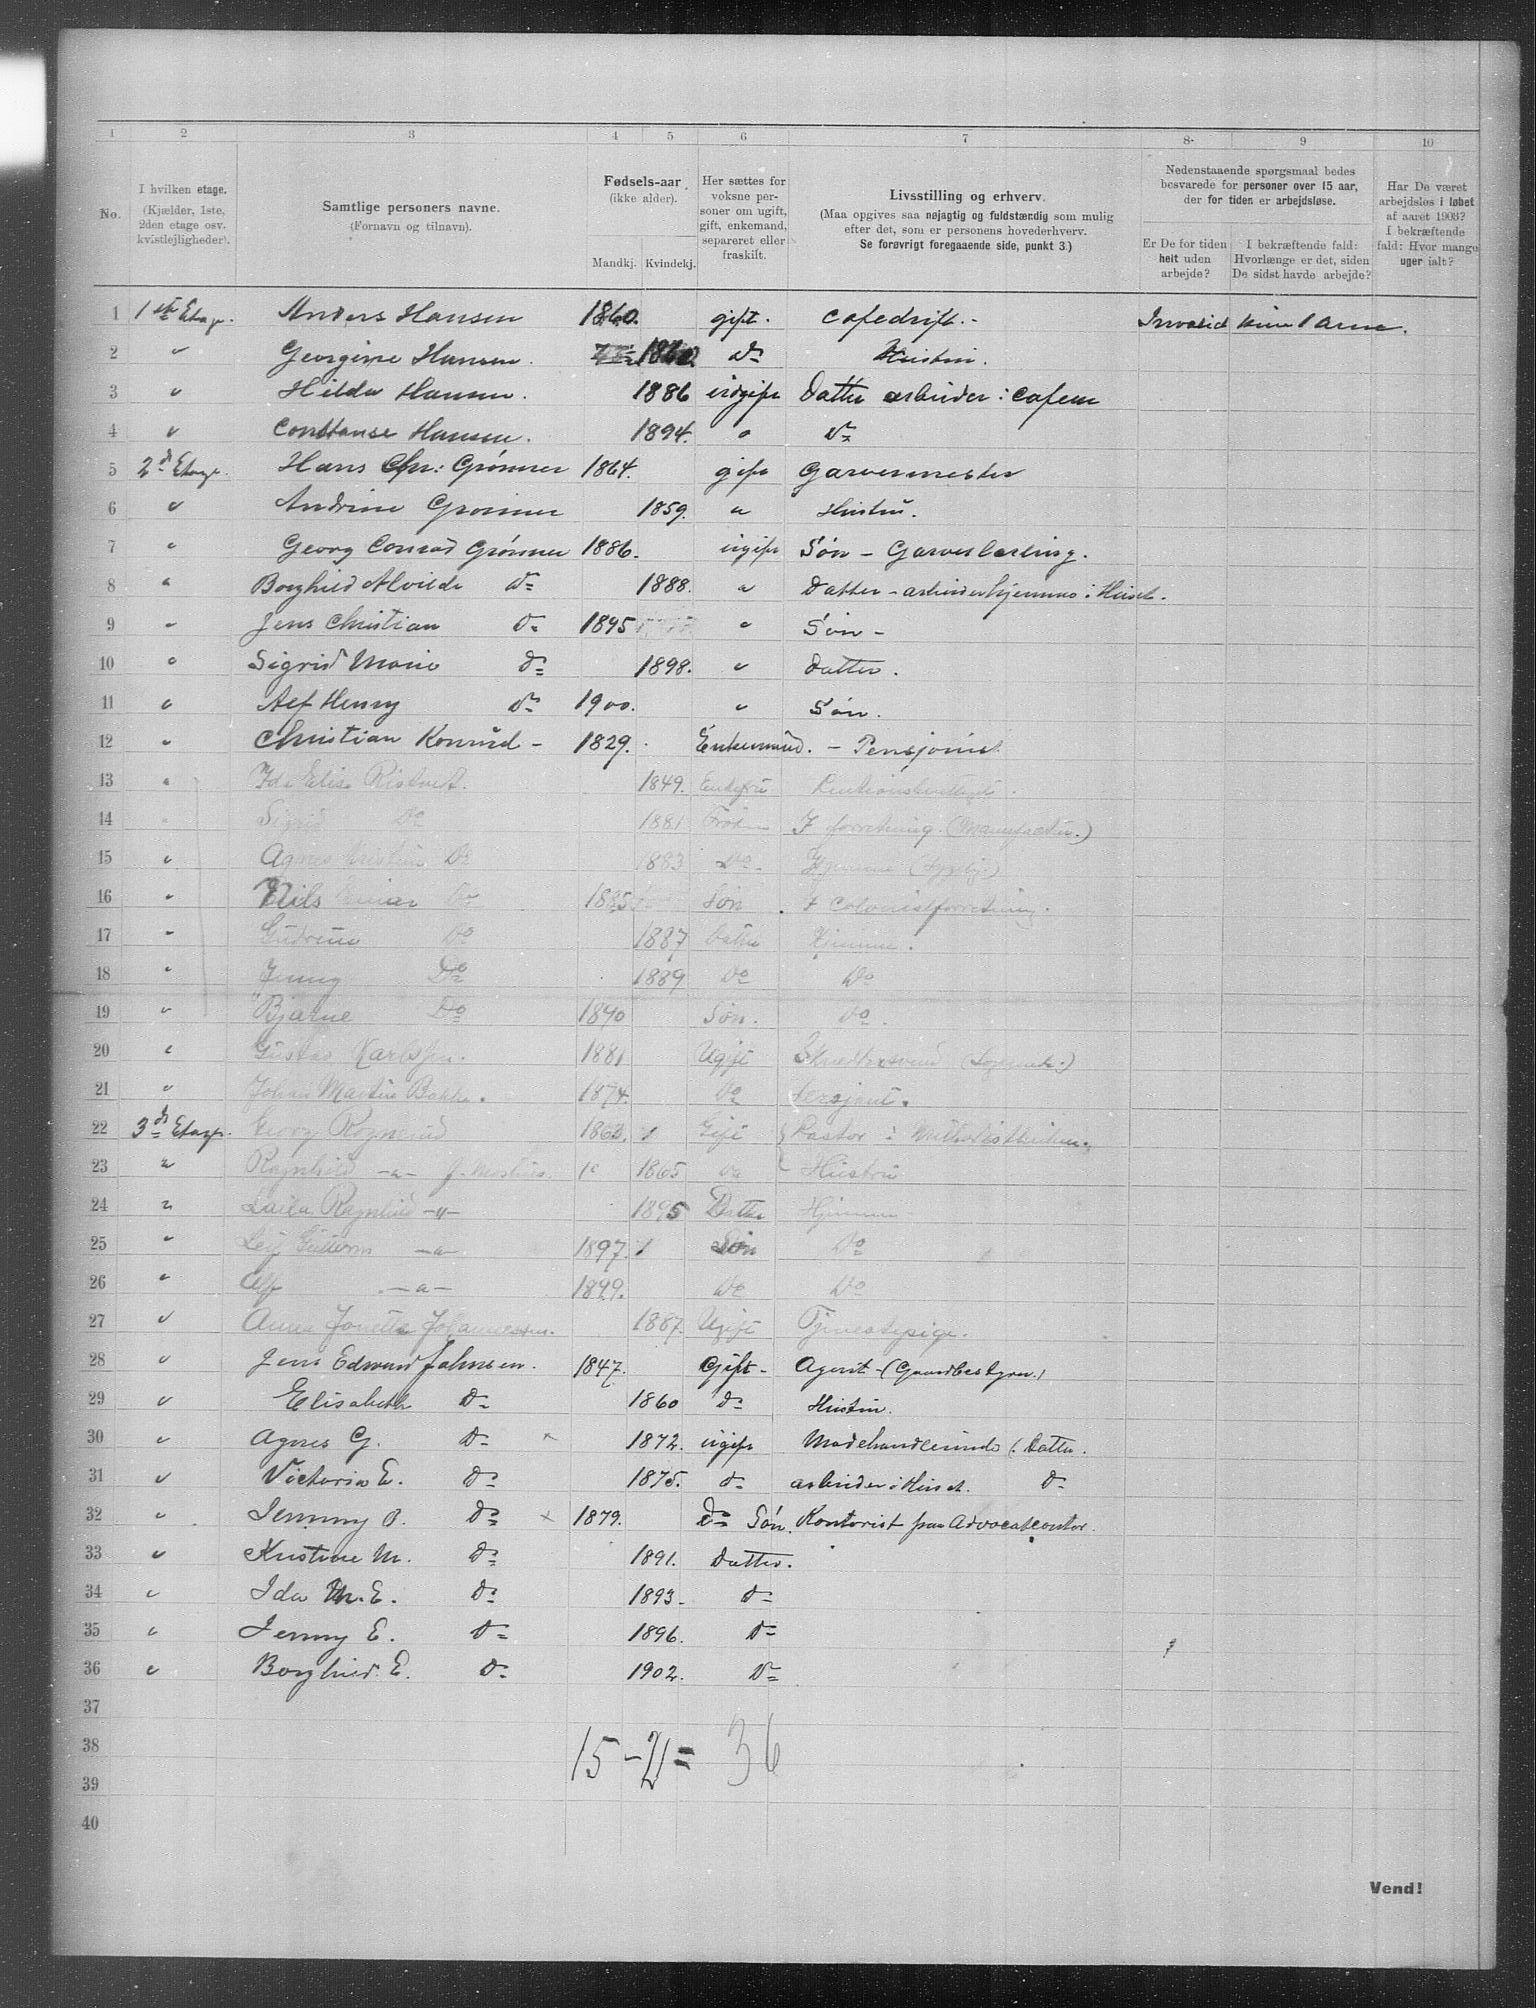 1 2 3 4 5 6 7 8 9 10
No.
I hvilken etage. (Kjælder, 1ste, 2den etage osv. kvistlejligheder).
Samtlige personers navne. (Fornavn og tilnavn).
Fødsels-aar (ikke alder).
Mandkj. Kvindekj.
Her sættes for voksne personer om ugift, gift, enkemand, separeret eller fraskilt.
Livsstilling og erhverv.
(Maa opgives saa nøjagtig og fuldstændig som mulig efter det, som er personens hovederhverv.
Se forøvrigt foregaaende side, punkt 3.)
Nedenstaaende spørgsmaal bedes besvarede for personer over 15 aar, der for tiden er arbejdsløse.
Er De for tiden helt uden arbejde?
I bekræftende fald: Hvorlænge er det, siden De sidst havde arbejde?
Har De været arbejdsløs i løbet af aaret 1903? I bekræftende fald: Hvor mange uger ialt?
1 1ste Etage. Anders Hansen 1860. gift. Cafedrift.- Invalid kun 1 Arm.
2 " Georgine Hansen. do Hustru.
3 " Hilda Hansen. 1886 ugift Datter arbeider i Cafeen
4 " Constanse Hansen. 1894. " do
5 2d Etage. Hans Chr: Grönner 1864. gift Garvermester
6 " Andrine Grönner 1859. " Hustru.
7 " Georg Conrad Grönner 1886. ugift Søn - Garverlærling.
8 " Borghild Alvilde do 1888. " Datter - arbeider hjemme i Huset.
9 " Jens Christian do 1895 " Søn -
10 " Sigrid Marie do 1898. " Datter.
11 " Alf Henry do 1900. " Søn.
12 " Christian Konrud - 1829. Enkemand. - Pensjonist
13 " Ida Elise 1849. Enkefru
14 " Sigrid Do 1881 Frøken I forretning (Manufactur.)
15 " Agnes Kristine Do 1883 Do. Hjemme
16 " Nils Einar Do 1885 Søn I Colonialforretning.
17 " Gudrun Do 1887 Datter Hjemme.
18 " Jenny Do 1889 Do Do
19 " Bjarne Do 1890 Søn. Do.
20 " Gustav Karlsen. 1881 Ugift
21 " Johan Martin Bakke. 1874. Do Sersjant.
22 3de Etage. Georg 1863. Gift Pastor i Methodistkirken.
23 " Ragnhild -"- 1865 Do Hustru
24 " Laila Ragnhild -"- 1895 Datter Hjemme
25 " Leif Guttorm -"- 1897. Søn Do
26 " Alf -"- 1899. Do Do
27 " Anna Jonette Johannessen. 1887. Ugift Tjenestepige.
28 " Jens Edvard Johnsen. 1847. Gift - Agent - (Gaardbestyrer.)
29 " Elisabeth Do 1860 do Hustru.
30 " Agnes G. Do × 1872. ugift Modehandlerinde (: Datter.
31 " Victoria E. Do 1875. do arbeider i Huset. do
32 " Jenny O. Do × 1879. do Søn. Kontorist paa Advocatcontor.
33 " Kristine M. Do 1891. Datter.
34 " Ida M. E. Do 1893. do
35 " Jenny E. Do 1896. do
36 " Borghild. E. Do 1902. do
37
38 15 - 21 = 36
39
40
Vend!